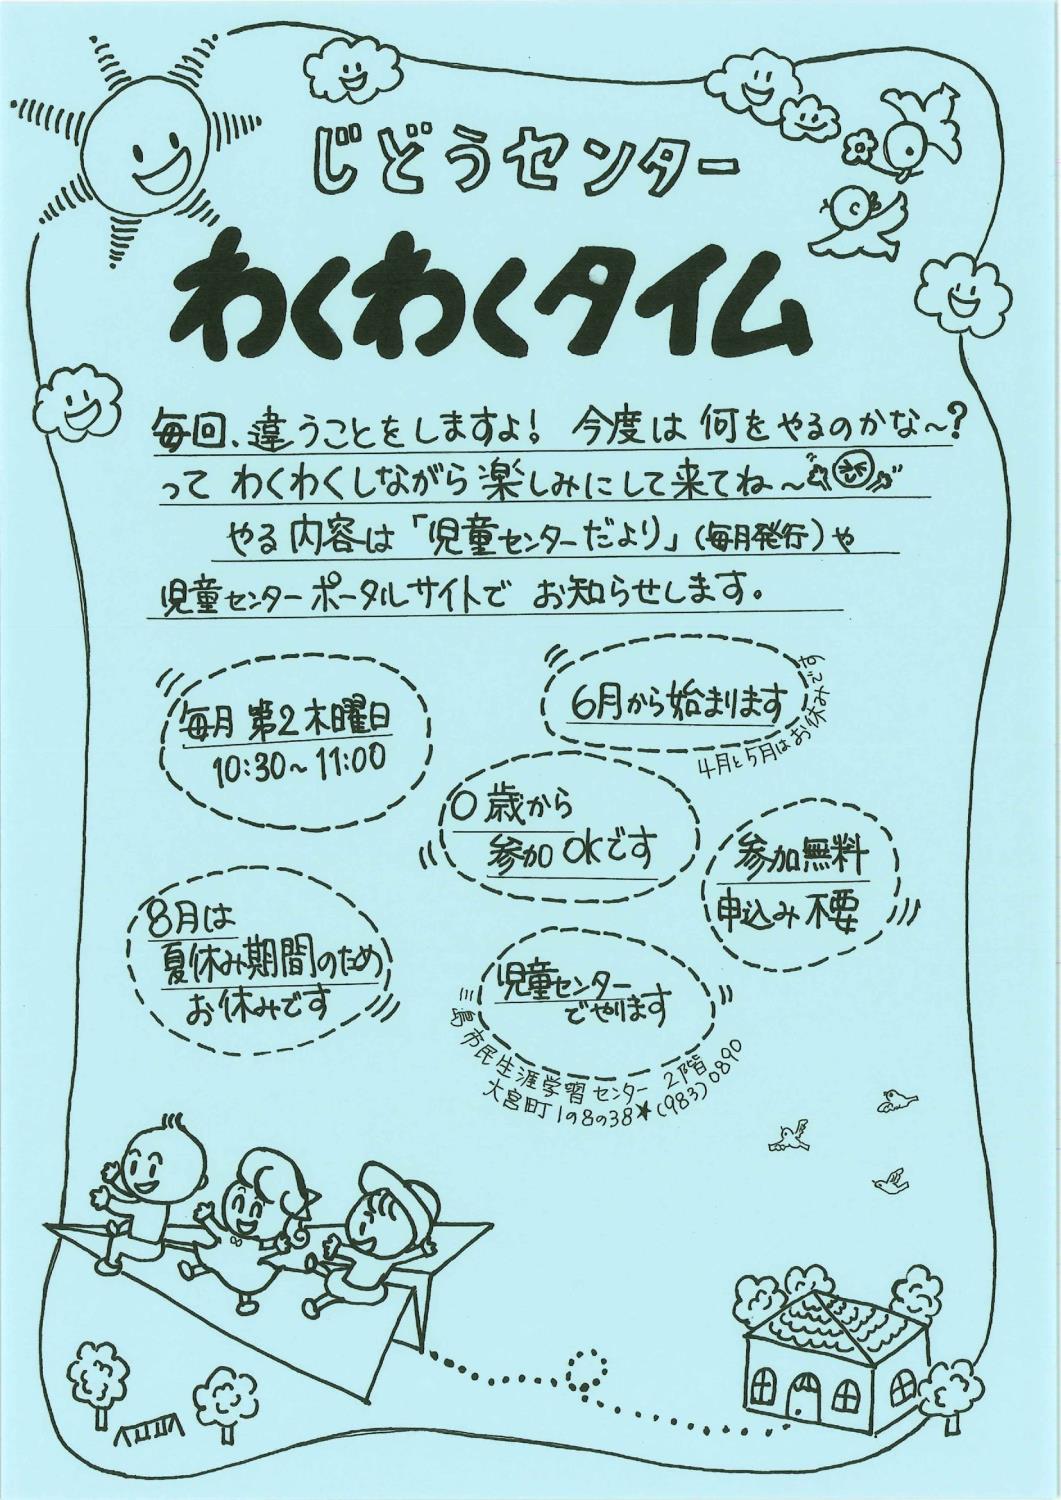 じどうセンター
わくわくタイム
毎回、違うことをしますよ! 今度は 何をやるのかな～?
って わくわくしながら 楽しみにして来てね～
やる内容は「児童センターだより」(毎月発行)や
児童センターポータルサイトで お知らせします。
毎月 第2木曜日
10:30～11:00
6月から始まります
4月と5月はお休みです
0歳から
参加OKです
参加無料
申込み不要
8月は
夏休み期間のため
お休みです
児童センター
でやります
三島市民生涯学習センター 2階
大宮町1の8の38★(983)0890